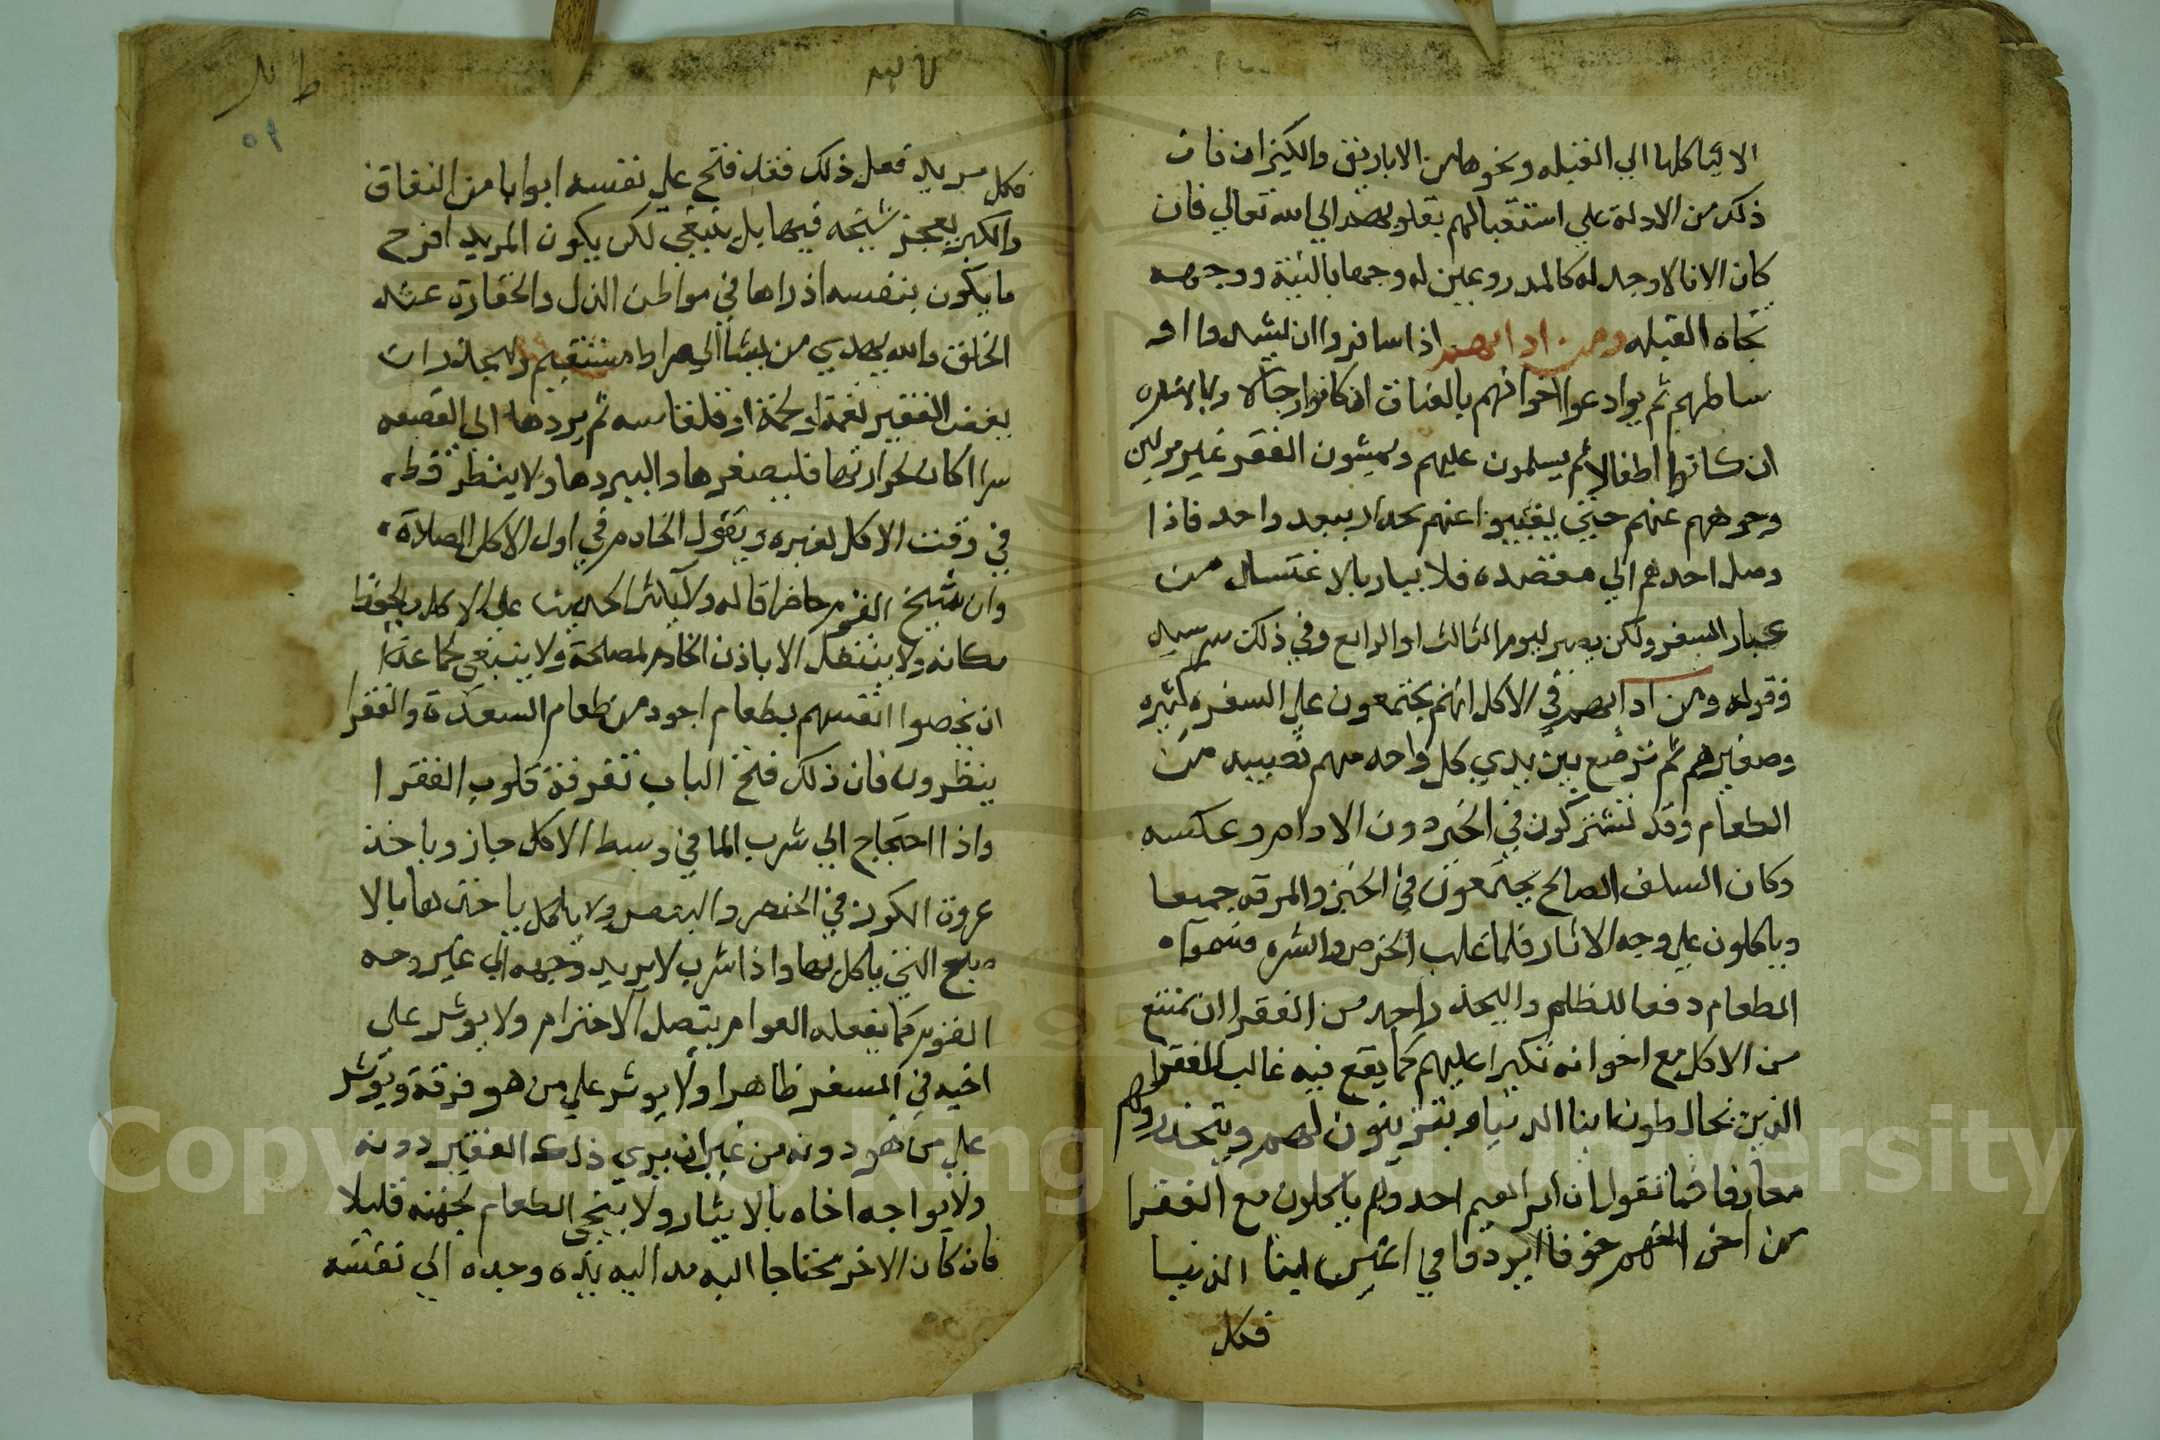 الاشيا كلها الي القبله ونحوها من الاباريق والكيزان فان
ذلك من الادلة علي استقبالهم بقلوبهم الي الله تعالي فان
كان الانا لا وجه له كالمدور وعين له وجها بالنية ووجهه
تجاه القبله ومن ادابهم اذا سافروا ان يشدوا او
ساطهم ثم يوادعوا اخوانهم بالعناق ان كانوا رجالا وبالاشاره
ان كانوا اطفالا ثم يسلمون عليهم ويمشون القهقرا غير مولين
وجوههم عنهم حتي يغيبوا عنهم بجدار ببعد واحد فاذا
وصل احدهم الي مقصده فلا يبادر بالاغتسال من
غبار السفر ولكن يصبر ليوم الثالث او الرابع وفي ذلك سر
ومن ادابهم في الاكل انهم يجتمعون علي السفره كبيرهم
وصغيرهم ثم توضع بين يدي كل واحد منهم نصيبه من
الطعام وقد تشتركون في الخبز دون الادام وعكسه
وكان السلف الصالح يجتمعون في الخبز والمرقه جميعا
وياكلون علي وجه الايثار فلما غلب الحرص والشره قسموا
الطعام دفعا للظلم واليحذر واحد من الفقرا ان يمتنع
من الاكل مع اخوانه تكبرا عليهم كما يقع فيه غالب الفقرا
الذين يخالطون ابنا الدنيا ويتزينون لهم ويتخذونهم
معارفا فما نقول ان ابراهيم احدهم ياكلون مع الفقرا
من اخوانهم خوفا ان يزدروا في اعين ابنا الدنيا
فكل
٤٧
٥٩
فكل مريد فعل ذلك فقد فتح علي نفسه ابوابا من النفاق
والكبر يعجز شيخه فيها بل ينبغي لكن يكون المريد افرح
ما يكون بنفسه اذ راها في مواطن الذل والحقارة عند
الخلق والله يهدي من يشا الي صراط مستقيم وليحذر ان
يغض الفقير لقمة او لحمة او قلقاسه ثم يردها الي القصعه
سوا اكان لحرارتها فليصغرها واليبردها ولا ينظر قط
في وقت الاكل لغيره ويقول الخادم في اول الاكل الصلاة
وان شيخ القوم حاضرا قاله ولا يكثر الحديث علي الاكل ويحفظ
مكانه ولا ينتقل الا باذن الخادم لمصلحة ولا ينبغي لجماعة
ان يخصوا انفسهم بطعام اجود من طعام السعدة والفقرا
ينظرون فان ذلك فتح الباب تفرقة قلوب الفقرا
واذا احتجاج الي شرب الما في وسط الاكل جاز وياخذ
عروة الكوز في الخنصر والبنصر ولا باكل ياخذ بها بالا
صبع التي ياكل بها واذا شرب لا يريد وجهه الي غير وجه
القوم كما يفعله العوام بتصل الاحترام ولا يوثر علي
اخيه في السفر ظاهرا ولا يوثر علي من هو فوقه ويوثر
علي من هو دونه من غير ان يري ذلك الفقير دونه
ولا يواجه اخاه بالايثار ولا ينحي الطعام لجهته قليلا
فان كان الاخر محتاجا اليه مد اليه يده وجده الي نفسه
Copyright © King Saud University